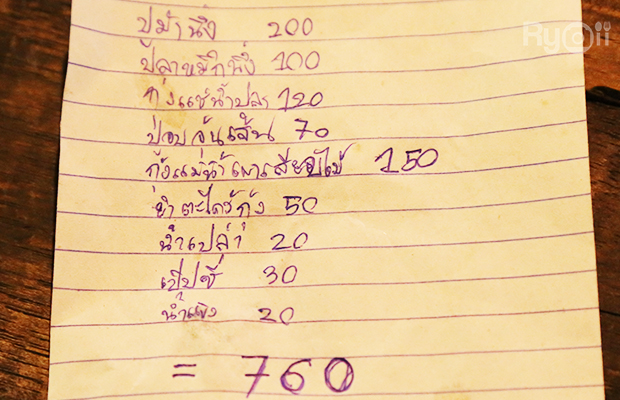 Ryoii
ปูม้านึ่ง 200
ปลาหมึกนึ่ง 100
กุ้งแช่น้ำปลา 120
ปูอบวุ้นเส้น 70
กุ้งแม่น้ำเผาเสียบไม้ 150
ยำตะไคร้กุ้ง 50
น้ำเปล่า 20
เป๊ปซี่ 30
น้ำแข็ง 20
= 760